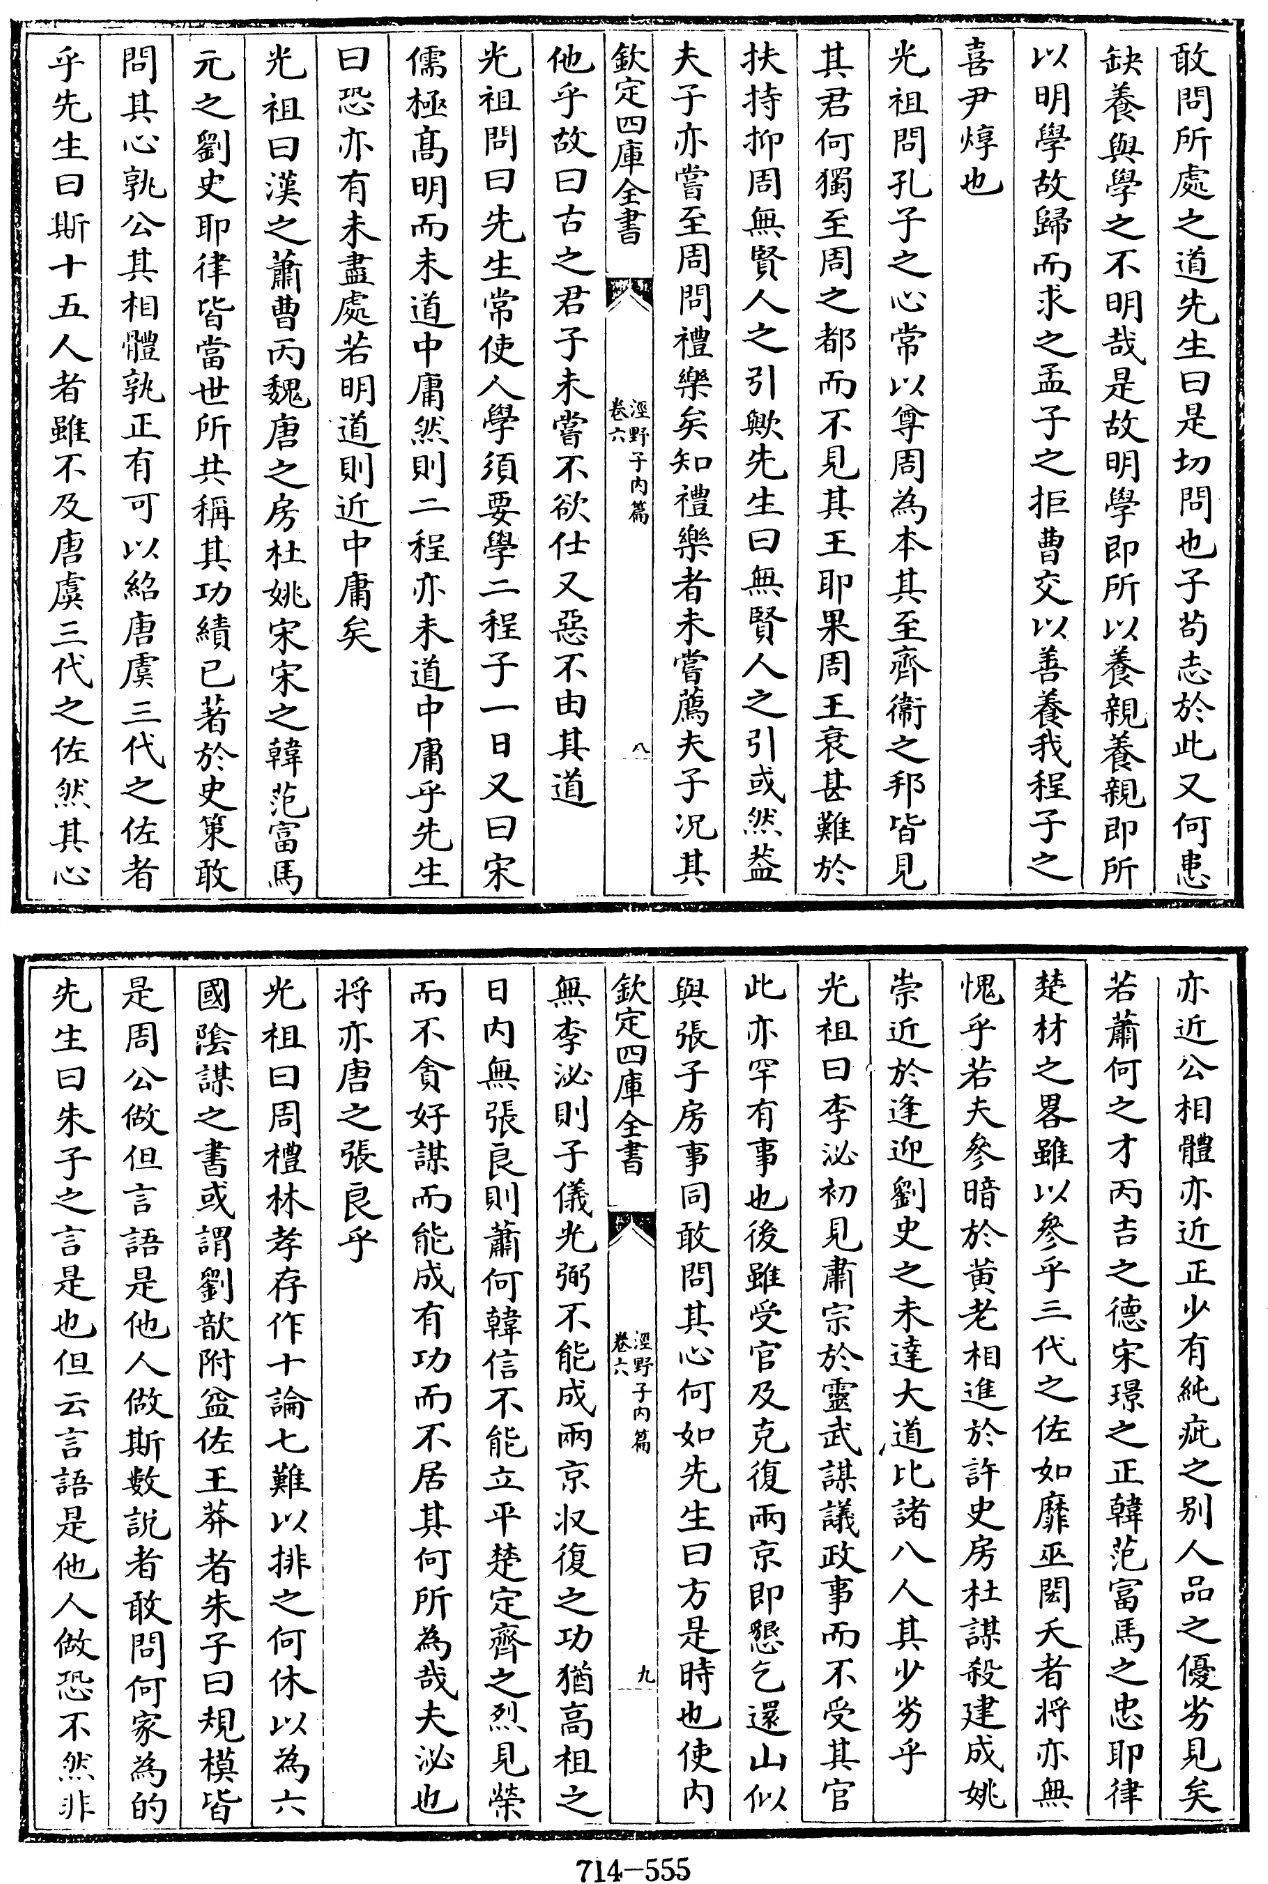 敢問所處之道先生曰是切問也子苟志於此又何患
缺養與學之不明哉是故明學即所以養親養親即所
以明學故歸而求之孟子之拒曹交以善養我程子之
喜尹焞也
光祖問孔子之心常以尊周為本其至齊衛之邦皆見
其君何獨至周之都而不見其王耶果周王衰甚難於
扶持抑周無賢人之引歟先生曰無賢人之引或然葢
夫子亦嘗至周問禮樂矣知禮樂者未嘗薦夫子況其
欽定四庫全書
涇野子內篇
卷六
八
他乎故曰古之君子未嘗不欲仕又惡不由其道
光祖問曰先生常使人學須要學二程子一日又曰宋
儒極髙明而未道中庸然則二程亦未道中庸乎先生
曰恐亦有未盡處若明道則近中庸矣
光祖曰漢之蕭曹丙魏唐之房杜姚宋宋之韓范富馬
元之劉史耶律皆當世所共稱其功績已著於史策敢
問其心孰公其相體孰正有可以紹唐虞三代之佐者
乎先生曰斯十五人者雖不及唐虞三代之佐然其心
亦近公相體亦近正少有純疵之别人品之優劣見矣
若蕭何之才丙吉之德宋璟之正韓范富馬之忠耶律
楚材之畧雖以參乎三代之佐如靡巫閎夭者將亦無
愧乎若夫參暗於黄老相進於許史房杜謀殺建成姚
崇近於逢迎劉史之未達大道比諸八人其少劣乎
光祖曰李泌初見肅宗於靈武謀議政事而不受其官
此亦罕有事也後雖受官及克復兩京即懇乞還山似
與張子房事同敢問其心何如先生曰方是時也使内
欽定四庫全書
涇野子內篇
卷六
九
無李泌則子儀光弼不能成兩京収復之功猶高祖之
日内無張良則蕭何韓信不能立平楚定齊之烈見榮
而不貪好謀而能成有功而不居其何所為哉夫泌也
將亦唐之張良乎
光祖曰周禮林孝存作十論七難以排之何休以為六
國隂謀之書或謂劉歆附益佐王莽者朱子曰規模皆
是周公做但言語是他人做斯數說者敢問何家為的
先生曰朱子之言是也但云言語是他人做恐不然非
714-555